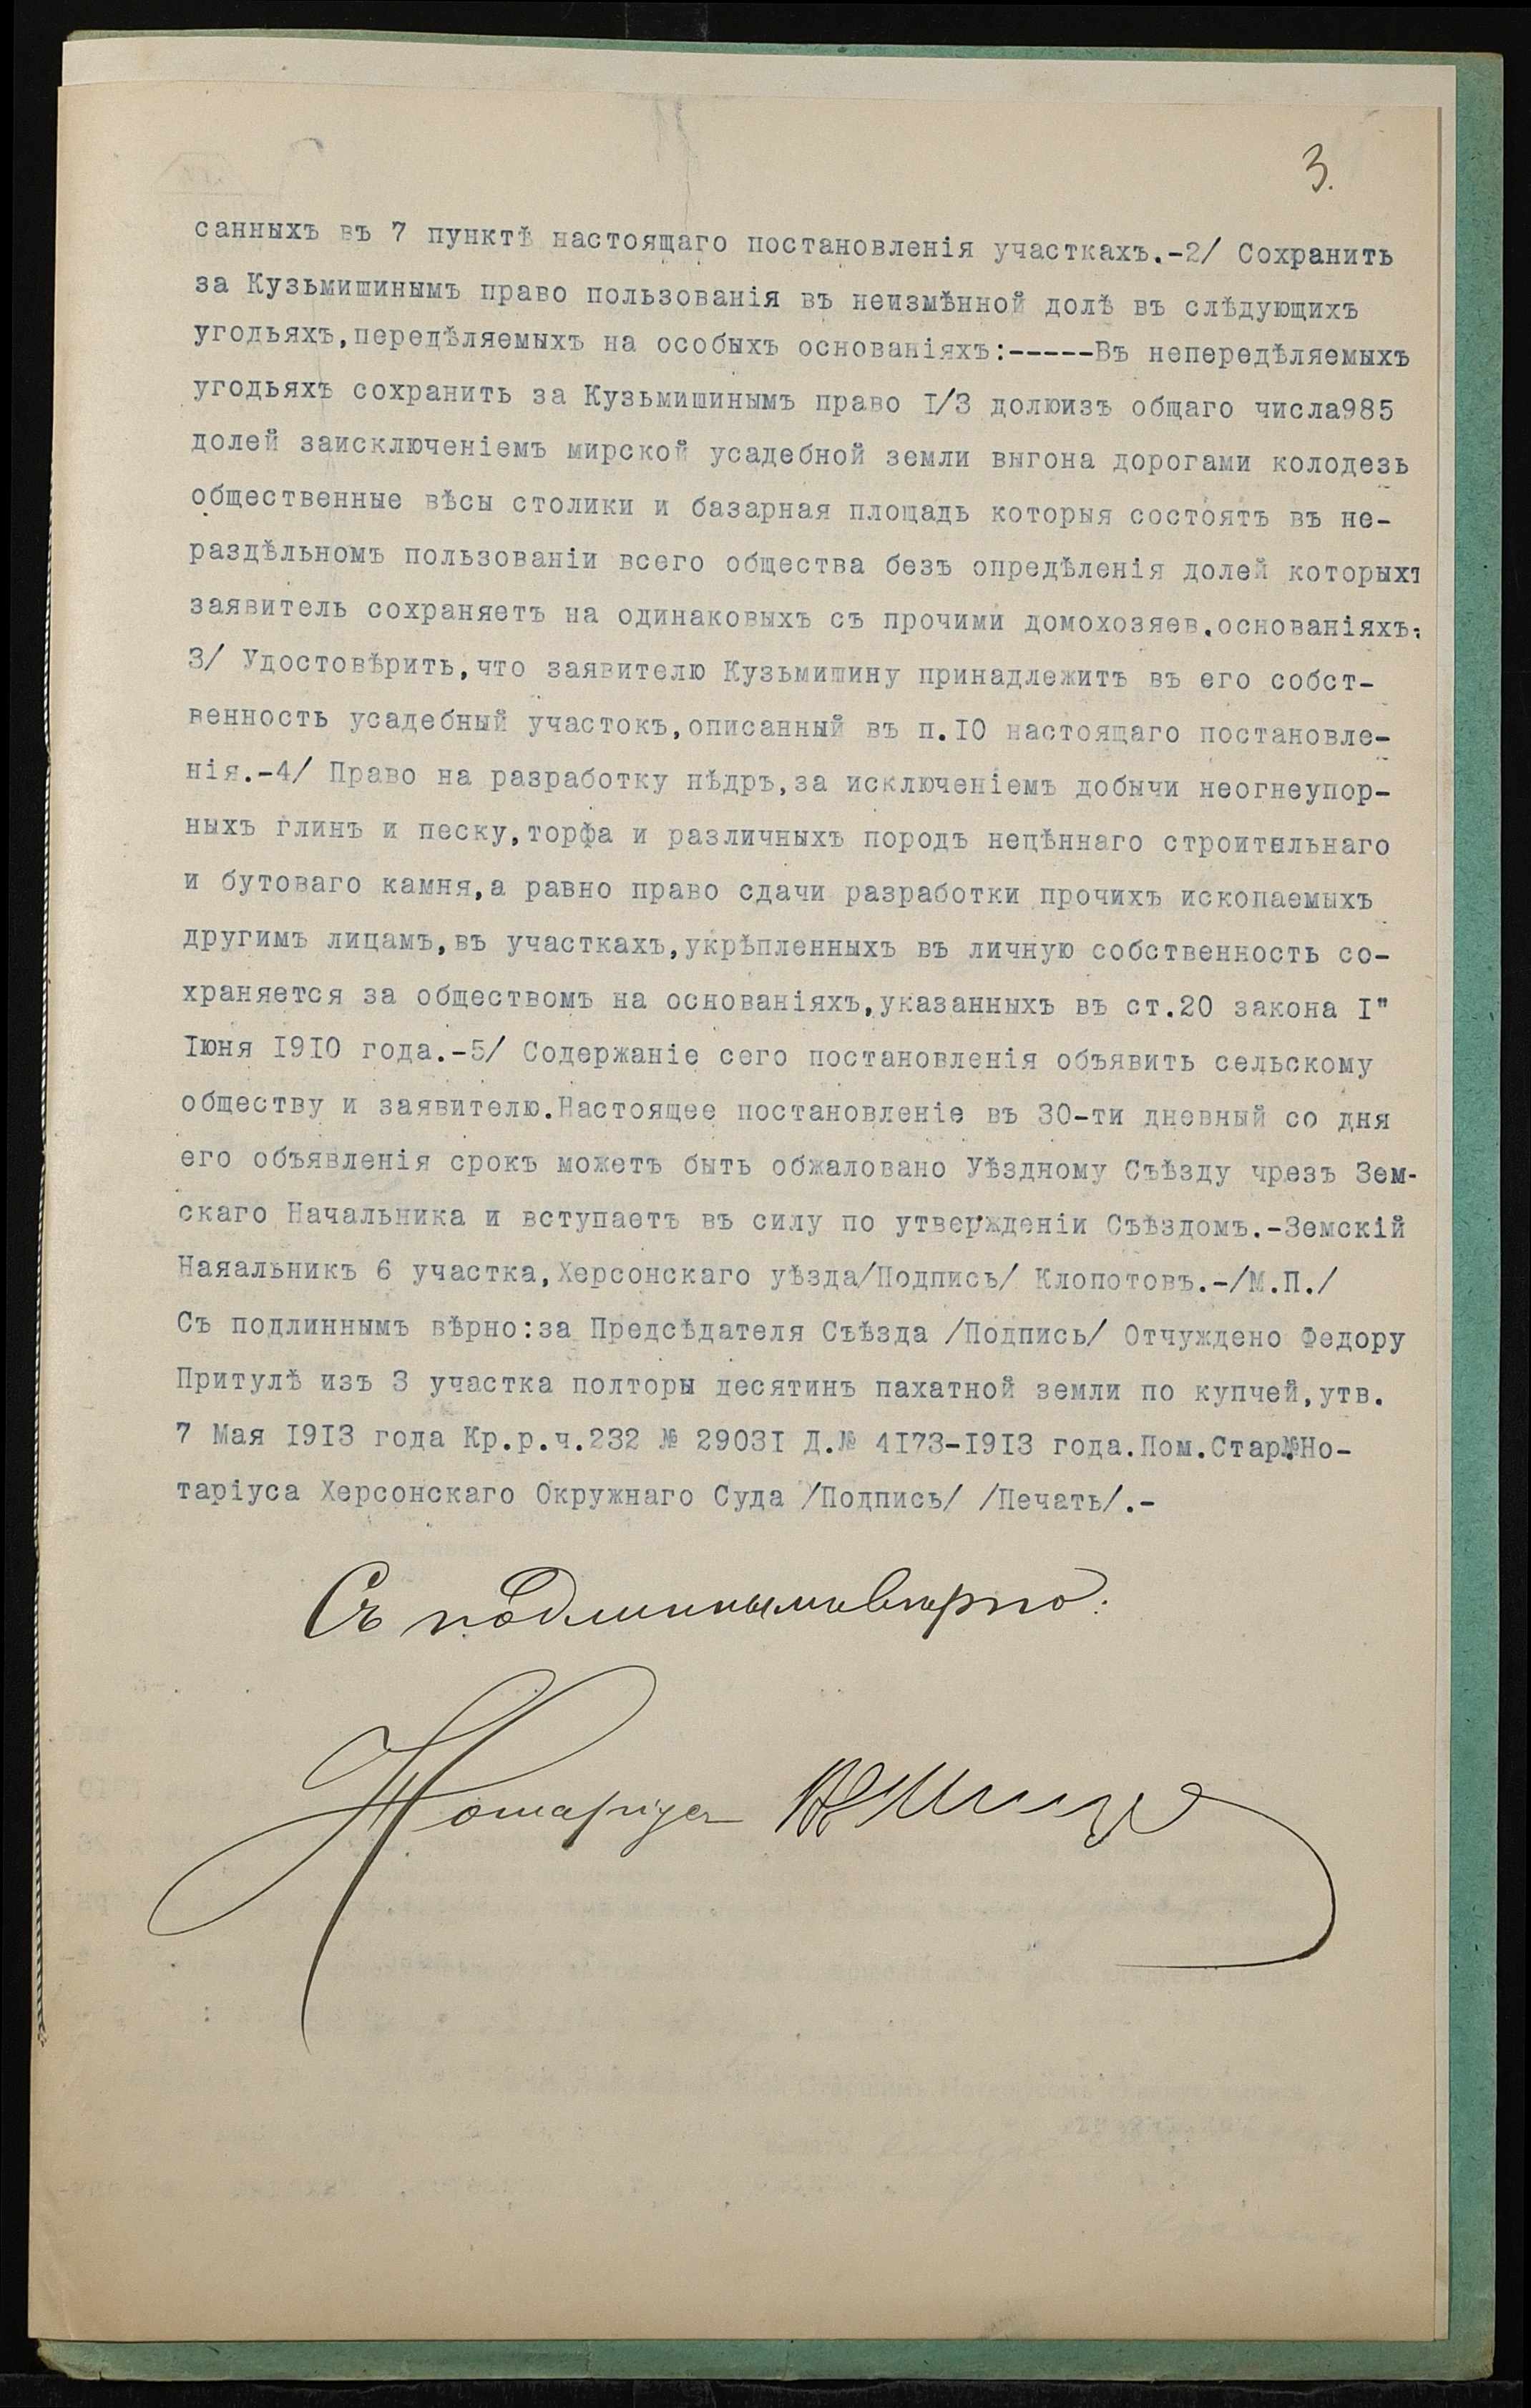 3.
санныхъ въ 7 пунктѣ настоящаго постановленія участкахъ.-2/ Сохранить
за Кузьмишинымъ право пользованія въ неизмѣнной долѣ въ слѣдующихъ
угодьяхъ,передѣляемыхъ на особыхъ основаніяхъ:-----Въ непередѣляемыхъ
угодьяхъ сохранить за Кузьмишинымъ право I/3 долюизъ общаго числа985
долей заисключеніемъ мирской усадебной земли выгона дорогами колодезь
общественные вѣсы столики и базарная площадь которыя состоятъ въ не-
раздѣльномъ пользованіи всего общества безъ опредѣленія долей которыхъ
заявитель сохраняетъ на одинаковыхъ съ прочими домохозяев.основаніяхъ:
3/ Удостовѣрить,что заявителю Кузьмишину принадлежитъ въ его собст-
венность усадебный участокъ,описанный въ п.IO настоящаго постановле-
нія.-4/ Право на разработку нѣдръ,за исключеніемъ добычи неогнеупор-
ныхъ глинъ и песку,торфа и различныхъ породъ нецѣннаго строительнаго
и бутоваго камня,а равно право сдачи разработки прочихъ ископаемыхъ
другимъ лицамъ,въ участкахъ,укрѣпленныхъ въ личную собственность со-
храняется за обществомъ на основаніяхъ,указанныхъ въ ст.20 закона I"
Iюня I9IO года.-5/ Содержаніе сего постановленія объявить сельскому
обществу и заявителю.Настоящее постановленіе въ 30-ти дневный со дня
его объявленія срокъ можетъ быть обжаловано Уѣздному Съѣзду чрезъ Зем-
скаго Начальника и вступаетъ въ силу по утвержденіи Съѣздомъ.-Земскій
Наяальникъ 6 участка,Херсонскаго уѣзда/Подпись/ Клопотовъ.-/М.П./
Съ подлиннымъ вѣрно:за Предсѣдателя Съѣзда /Подпись/ Отчуждено Федору
Притулѣ изъ 3 участка полторы десятинъ пахатной земли по купчей,утв.
7 Мая I9I3 года Кр.р.ч.232 № 2903I Д.№ 4I73-I9I3 года.Пом.Стар.№Но-
таріуса Херсонскаго Окружнаго Суда /Подпись/ /Печать/.-
Съ подлиннымъ вѣрно:
Нотаріусъ